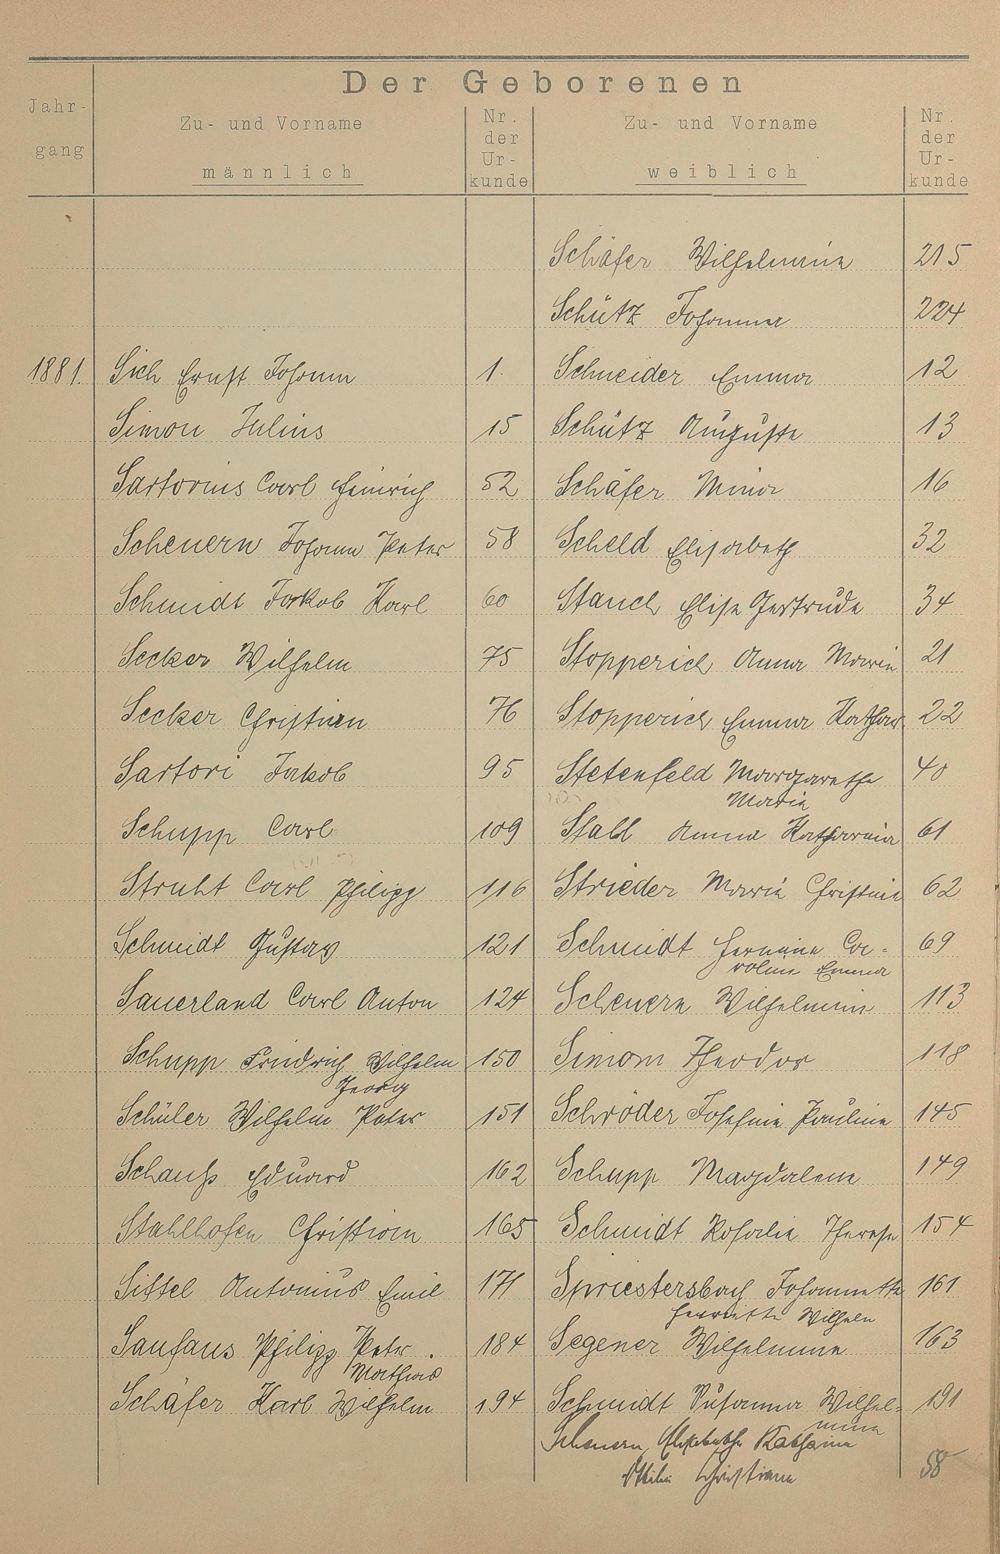 Der Geborenen
Jahr-
gang
Zu- und Vorname
männlich
Nr.
der
Ur-
kunde
Zu- und Vorname
weiblich
Nr.
der
Ur-
kunde
Schäfer Wilhelmine 215
Schütz Johanna 224
1881. Sich Ernst Johann 1. Schneider Emma 12
Simon Julius 15 Schütz Auguste 13
Sartorius Carl Heinrich 52 Schäfer Mina 16
Scheuern Johann Peter 58 Scheld Elisabeth 32
Schmidt Jakob Karl 60 Stauch Elise Gertrude 34
Secker Wilhelm 75 Stopperich Anna Maria 21
Secker Christian 76 Stopperich Emma Kathar. 22
Sartori Jakob 95 Stetenfeld Margarethe 40
Maria
Schupp Carl 109 Stahl Anna Katharina 61
Struht Carl Philipp 116 Strieder Maria Christine 62
Schmidt Gustav 121 Schmidt Hermine Ca- 69
roline Emma
Sauerland Carl Anton 124 Scheuern Wilhelmine 113
Schupp Friedrich Wilhelm 150 Simon Theodor 118
Georg
Schüler Wilhelm Peter 151 Schröder Josefine Pauline 145
Schauß Eduard 162 Schupp Magdalena 149
Stahlhofen Christian 165 Schmidt Rosalie Therese 154
Sittel Antonius Emil 171 Spriestersbach Johannette 161
Henriette Wilhelm
Saufaus Philipp Peter 184 Segener Wilhelmine 163
Mathias
Schäfer Karl Wilhelm 194 Schmidt Susanna Wilhel- 191
mina
Scheuern Elisabetha Katharina
Ottilie Christiane 58